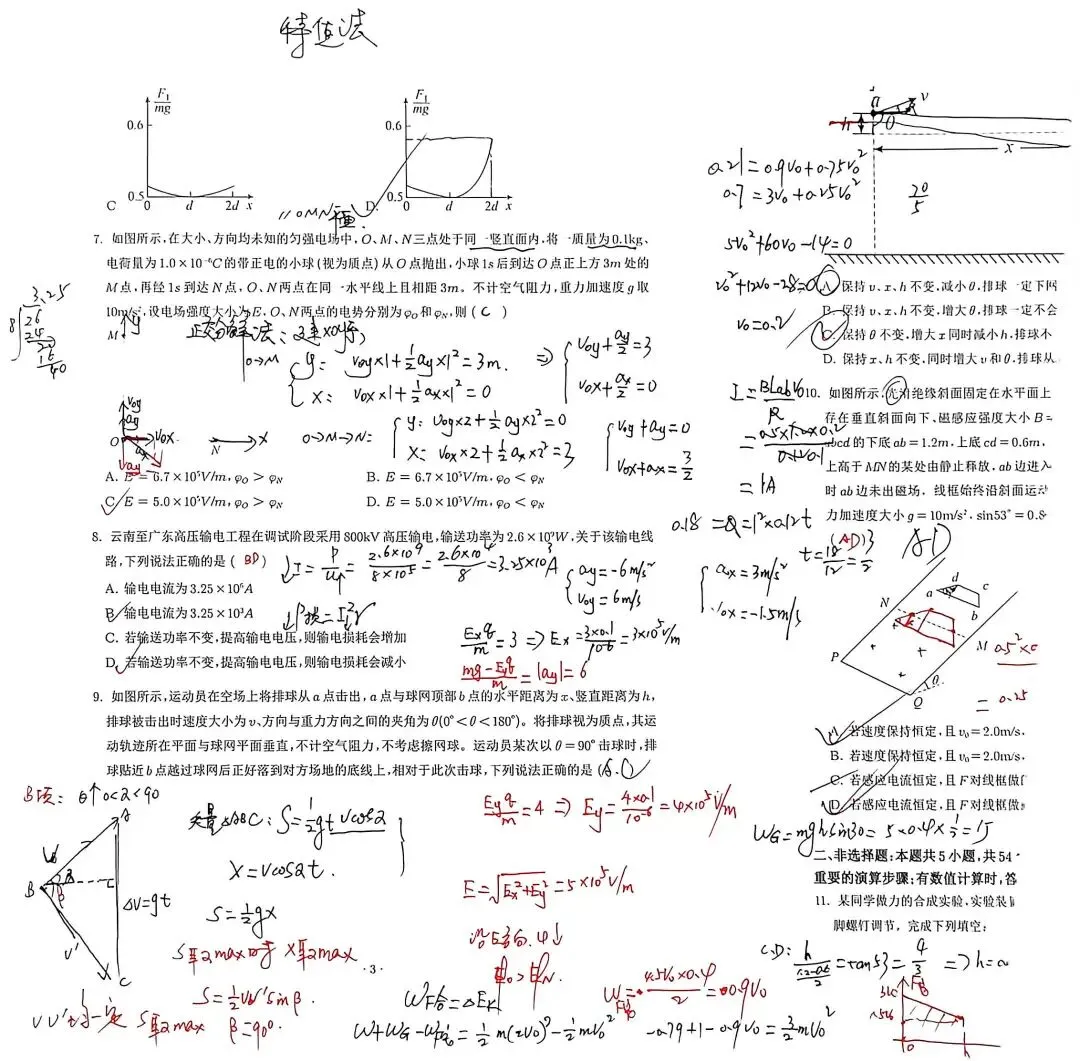 特值法
F₁/mg
0.6
0.5
C
0 d 2d x
F₁/mg
0.6
0.5
D.
0 d 2d x
7. 如图所示,在大小、方向均未知的匀强电场中,O、M、N三点处于同一竖直面内,将一质量为0.1kg、
电荷量为1.0×10⁻⁶C的带正电的小球(视为质点)从O点抛出,小球1s后到达O点正上方3m处的
M点,再经1s到达N点,O、N两点在同一水平线上且相距3m。不计空气阻力,重力加速度g取
10m/s²,设电场强度大小为E,O、N两点的电势分别为φO和φN,则( C )
3.25
M y
正交分解法:
O→M
y: voy×1+½ay×1²=3m.
x: vox×1+½ax×1²=0
⇒ voy+ay/2=3
vox+ax/2=0
O voy ay vox ax
N x
O→M→N:
y: voy×2+½ay×2²=0
x: vox×2+½ax×2²=3
voy+ay=0
vox+ax=3/2
A. E=6.7×10⁵V/m,φO>φN
B. E=6.7×10⁵V/m,φO<φN
C. E=5.0×10⁵V/m,φO>φN
D. E=5.0×10⁵V/m,φO<φN
8. 云南至广东高压输电工程在调试阶段采用800kV高压输电,输送功率为2.6×10⁹W,关于该输电线
路,下列说法正确的是( BD )
↓I=P/U↑=2.6×10⁹/8×10⁵=2.6×10⁴/8=3.25×10³A
A. 输电电流为3.25×10⁶A
B. 输电电流为3.25×10³A
↓P损=I²r
C. 若输送功率不变,提高输电电压,则输电损耗会增加
D. 若输送功率不变,提高输电电压,则输电损耗会减小
ay=-6m/s²
voy=6m/s
ax=3m/s²
vox=-1.5m/s
Exq/m=3 ⇒ Ex=3×0.1/10⁻⁶=3×10⁵V/m
mg-Eyq/m=|ay|=6
9. 如图所示,运动员在空场上将排球从a点击出,a点与球网顶部b点的水平距离为x、竖直距离为h,
排球被击出时速度大小为v、方向与重力方向之间的夹角为θ(0°<θ<180°)。将排球视为质点,其运
动轨迹所在平面与球网平面垂直,不计空气阻力,不考虑擦网球。运动员某次以θ=90°击球时,排
球贴近b点越过球网后正好落到对方场地的底线上,相对于此次击球,下列说法正确的是(A.C)
B项: θ↑ 0<α<90
A
B
C
v'
Δv=gt
矢量△ABC: S=½gt vcosα
x=vcosαt.
S=½gx
S取max时 x取max
S=½v₀v'sinβ.
S取max β=90°.
Eyq/m=4 ⇒ Ey=4×0.1/10⁻⁶=4×10⁵V/m
E=√Ex²+Ey²=5×10⁵V/m
沿E方向.φ↓
φO>φN.
· 3 ·
W合=ΔEk
=½m(2v₀)²-½mv₀²
-0.79+1-0.9v₀=3/2mv₀²
a v
h
O
x
0.21=0.9v₀+0.75v₀²
0.7=3v₀+0.25v₀²
20/5
5v₀²+60v₀-14=0
v₀²+12v₀-28=0
v₀=0.2
A. 保持v、x、h不变,减小θ,排球一定下网
B. 保持v、x、h不变,增大θ,排球一定不会
C. 保持θ不变,增大x同时减小h,排球不
D. 保持x、h不变,同时增大v和θ,排球从
I=BLabv₀/R
=1A
10. 如图所示,光滑绝缘斜面固定在水平面上
存在垂直斜面向下、磁感应强度大小B=
abcd的下底ab=1.2m,上底cd=0.6m,
上高于MN的某处由静止释放,ab边进入
时ab边未出磁场, 线框始终沿斜面运动
力加速度大小g=10m/s², sin53°=0.8
(AD)
AD
0.18=Q=1²×0.12t
t=18/12=3/2
d c
a b
N
M
P
Q θ
=0.25
A. 若速度保持恒定,且v₀=2.0m/s,
B. 若速度保持恒定,且v₀=2.0m/s,
C. 若感应电流恒定,且F对线框做
D. 若感应电流恒定,且F对线框做
WG=mghsin30=5×0.4×½=1J
二、非选择题:本题共5小题,共54
重要的演算步骤;有数值计算时,答
11. 某同学做力的合成实验,实验装
脚螺钉调节, 完成下列填空:
C.D:
=tan53=4/3 ⇒h=